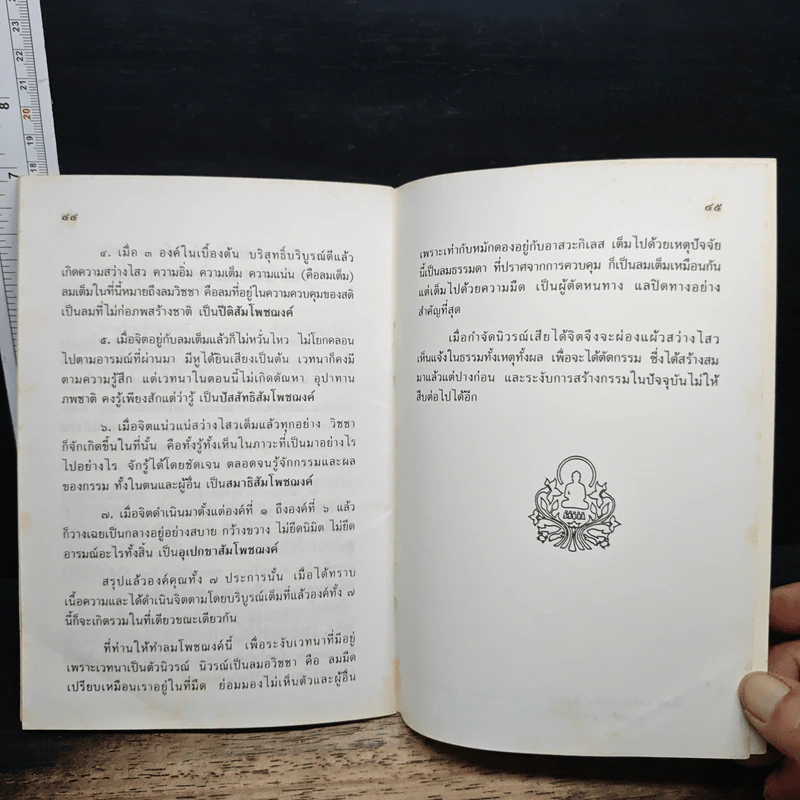 ๔๔
๔. เมื่อ ๓ องค์ในเบื้องต้น บริสุทธิ์บริบูรณ์ดีแล้ว
เกิดความสว่างไสว ความอิ่ม ความเต็ม ความแน่น (คือลมเต็ม)
ลมเต็มในที่นี้หมายถึงลมวิชชา คือลมที่อยู่ในความควบคุมของสติ
เป็นลมที่ไม่ก่อภพสร้างชาติ เป็นปีติสัมโพชฌงค์
๕. เมื่อจิตอยู่กับลมเต็มแล้วก็ไม่หวั่นไหว ไม่โยกคลอน
ไปตามอารมณ์ที่ผ่านมา มีหูได้ยินเสียงเป็นต้น เวทนาก็คงมี
ตามความรู้สึก แต่เวทนาในตอนนี้ไม่เกิดตัณหา อุปาทาน
ภพชาติ คงรู้เพียงสักแต่ว่ารู้ เป็นปัสสัทธิสัมโพชฌงค์
๖. เมื่อจิตแน่วแน่สว่างไสวเต็มแล้วทุกอย่าง วิชชา
ก็จักเกิดขึ้นในที่นั้น คือทั้งรู้ทั้งเห็นในภาวะที่เป็นมาอย่างไร
ไปอย่างไร จักรู้ได้โดยชัดเจน ตลอดจนรู้จักกรรมและผล
ของกรรม ทั้งในตนและผู้อื่น เป็นสมาธิสัมโพชฌงค์
๗. เมื่อจิตดำเนินมาตั้งแต่องค์ที่ ๑ ถึงองค์ที่ ๖ แล้ว
ก็วางเฉยเป็นกลางอยู่อย่างสบาย กว้างขวาง ไม่ยึดนิมิต ไม่ยึด
อารมณ์อะไรทั้งสิ้น เป็นอุเปกขาสัมโพชฌงค์
สรุปแล้วองค์คุณทั้ง ๗ ประการนั้น เมื่อได้ทราบ
เนื้อความและได้ดำเนินจิตตามโดยบริบูรณ์เต็มที่แล้วองค์ทั้ง ๗
นี้ก็จะเกิดรวมในที่เดียวขณะเดียวกัน
ที่ท่านให้ทำลมโพชฌงค์นี้ เพื่อระงับเวทนาที่มีอยู่
เพราะเวทนาเป็นตัวนิวรณ์ นิวรณ์เป็นลมอวิชชา คือ ลมมืด
เปรียบเหมือนเราอยู่ในที่มืด ย่อมมองไม่เห็นตัวและผู้อื่น
๔๕
เพราะเท่ากับหมักดองอยู่กับอาสวะกิเลส เต็มไปด้วยเหตุปัจจัย
นี้เป็นลมธรรมดา ที่ปราศจากการควบคุม ก็เป็นลมเต็มเหมือนกัน
แต่เต็มไปด้วยความมืด เป็นผู้ตัดหนทาง แลปิดทางอย่าง
สำคัญที่สุด
เมื่อกำจัดนิวรณ์เสียได้จิตจึงจะผ่องแผ้วสว่างไสว
เห็นแจ้งในธรรมทั้งเหตุทั้งผล เพื่อจะได้ตัดกรรม ซึ่งได้สร้างสม
มาแล้วแต่ปางก่อน และระงับการสร้างกรรมในปัจจุบันไม่ให้
สืบต่อไปได้อีก
7
8
18
19
20
21
22
23